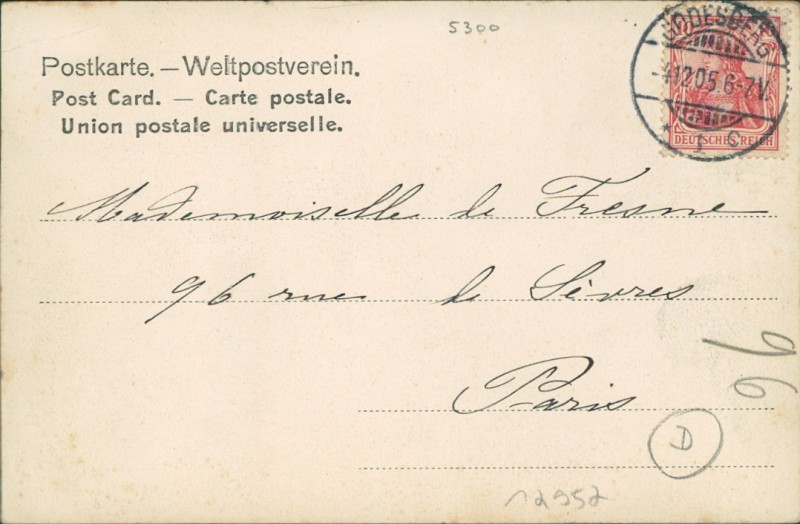 5300
GODESBERG
-4.12.05.6-7V.
* 1 C
DEUTSCHES REICH
Postkarte. — Weltpostverein.
Post Card. — Carte postale.
Union postale universelle.
Mademoiselle de Fresne
96 rue de Sèvres
Paris
96
D
12952